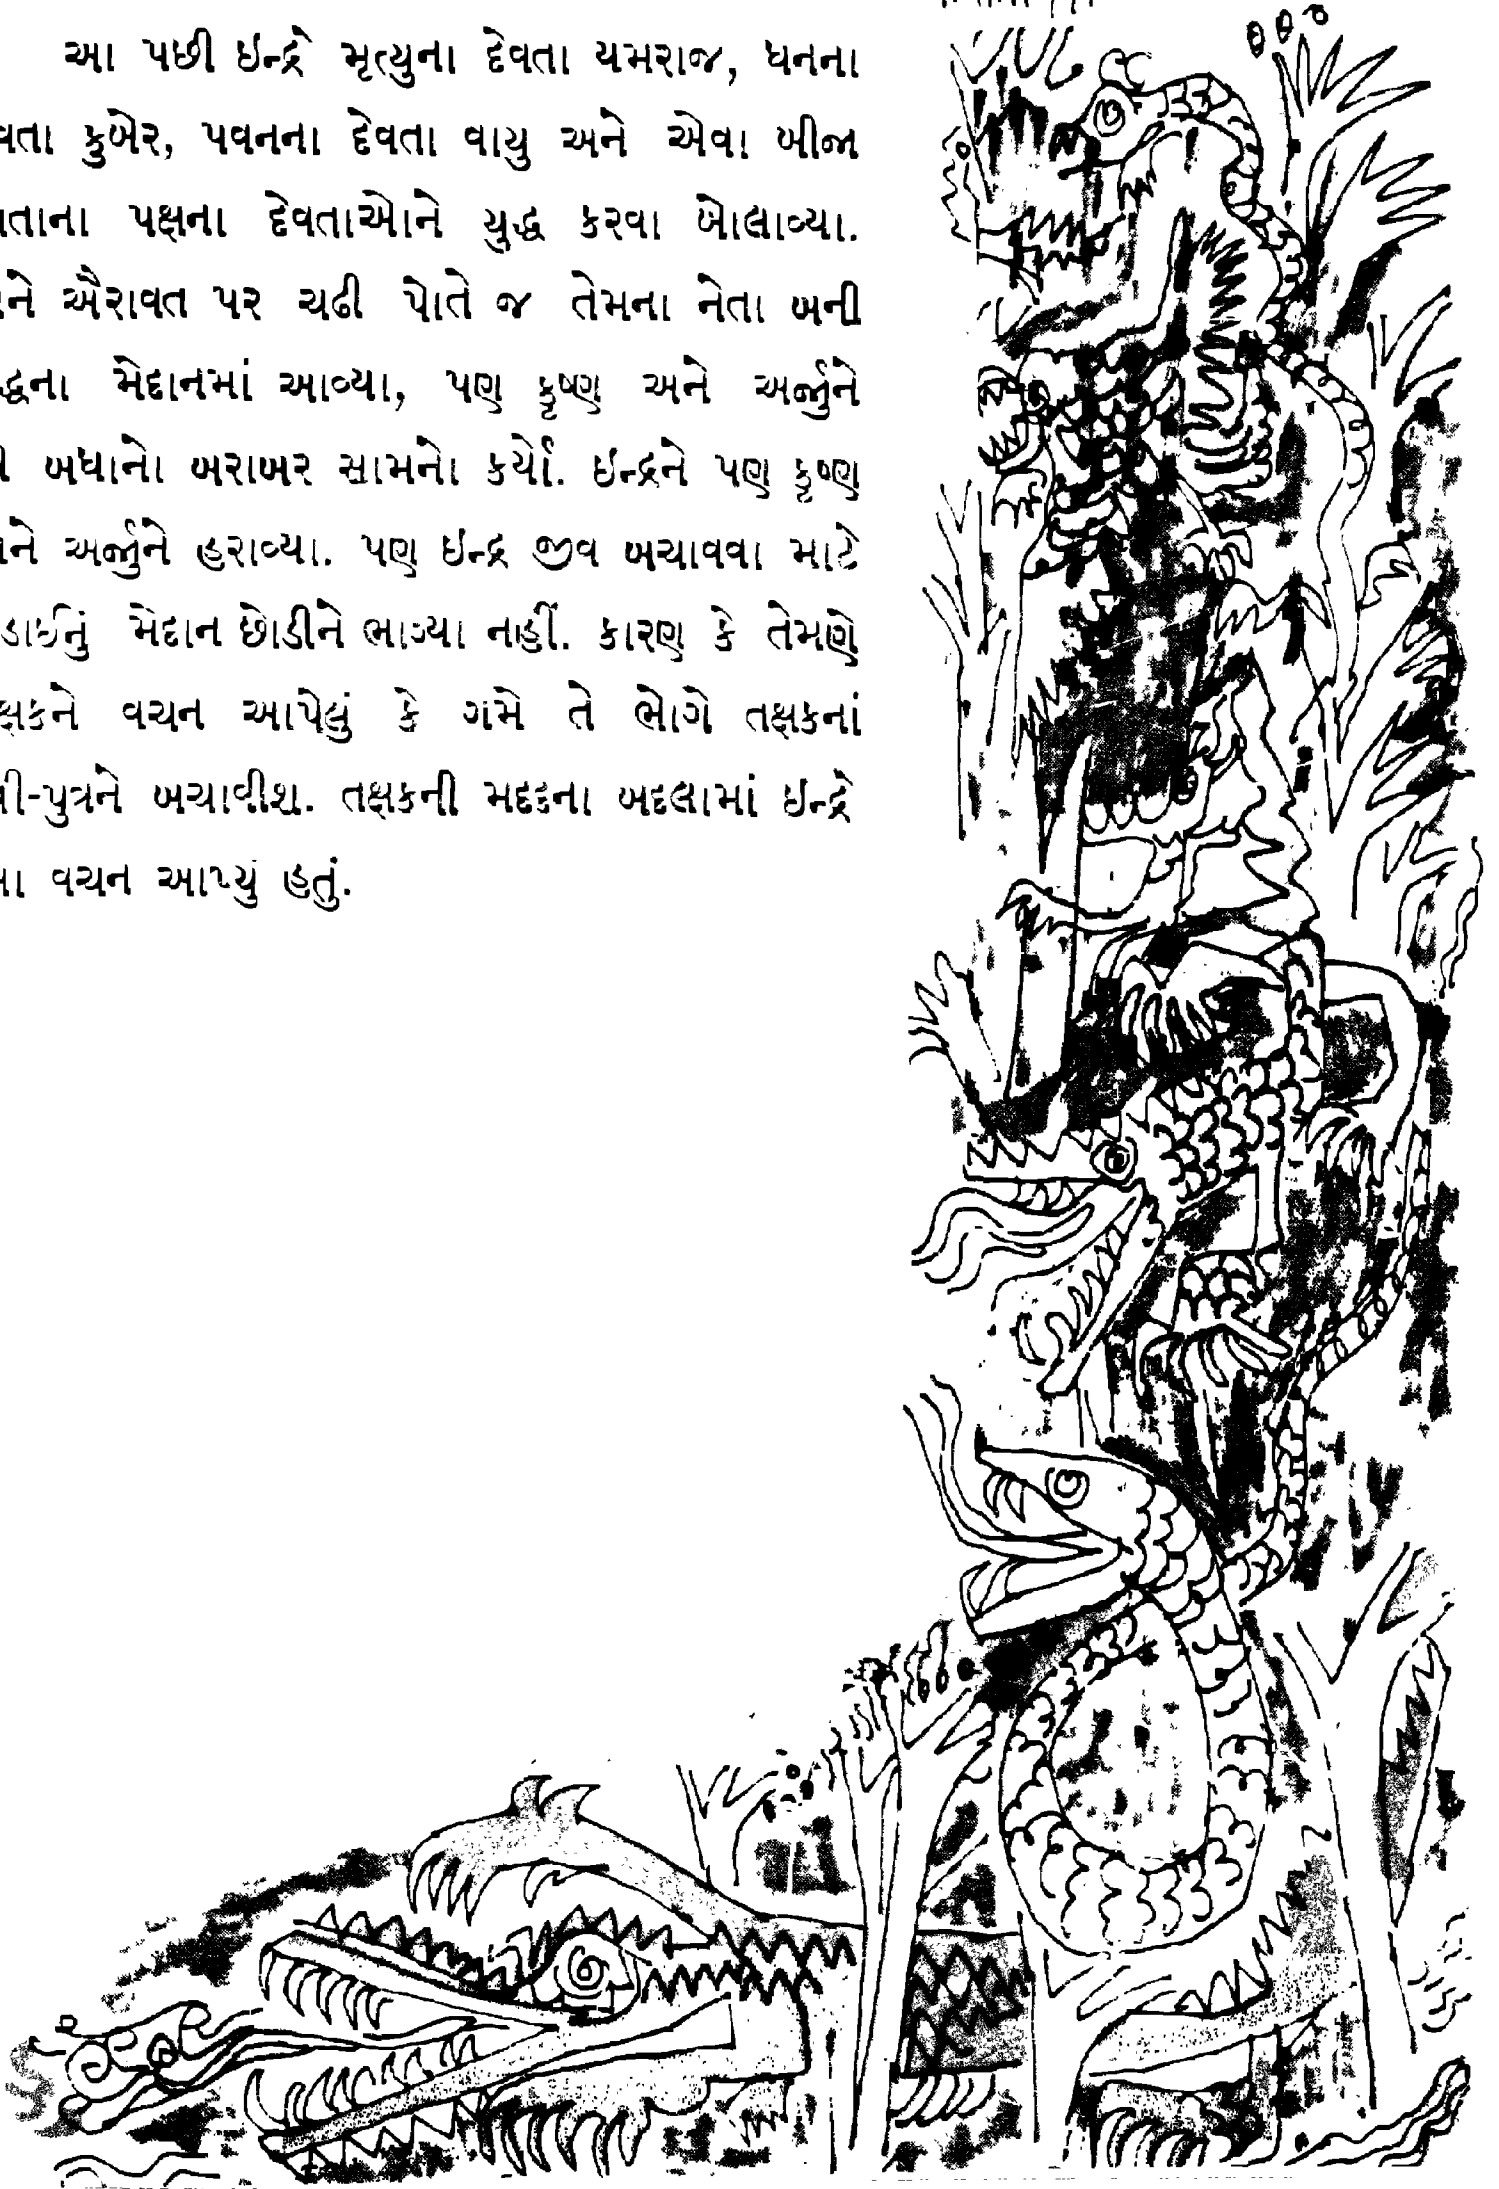 આ પછી ઇન્દ્રે મૃત્યુના દેવતા યમરાજ, ધનના
વતા કુબેર, પવનના દેવતા વાયુ અને એવા બીજા
તાના પક્ષના દેવતાઓને યુદ્ધ કરવા બોલાવ્યા.
ને ઐરાવત પર ચઢી પોતે જ તેમના નેતા બની
દ્ધના મેદાનમાં આવ્યા, પણ કૃષ્ણ અને અર્જુને
બધાનો બરાબર સામનો કર્યો. ઇન્દ્રને પણ કૃષ્ણ
ને અર્જુને હરાવ્યા. પણ ઇન્દ્ર જીવ બચાવવા માટે
ડાઈનું મેદાન છોડીને ભાગ્યા નહીં. કારણ કે તેમણે
ક્ષકને વચન આપેલું કે ગમે તે ભોગે તક્ષકનાં
ી-પુત્રને બચાવીશ. તક્ષકની મદદના બદલામાં ઇન્દ્રે
આ વચન આપ્યું હતું.